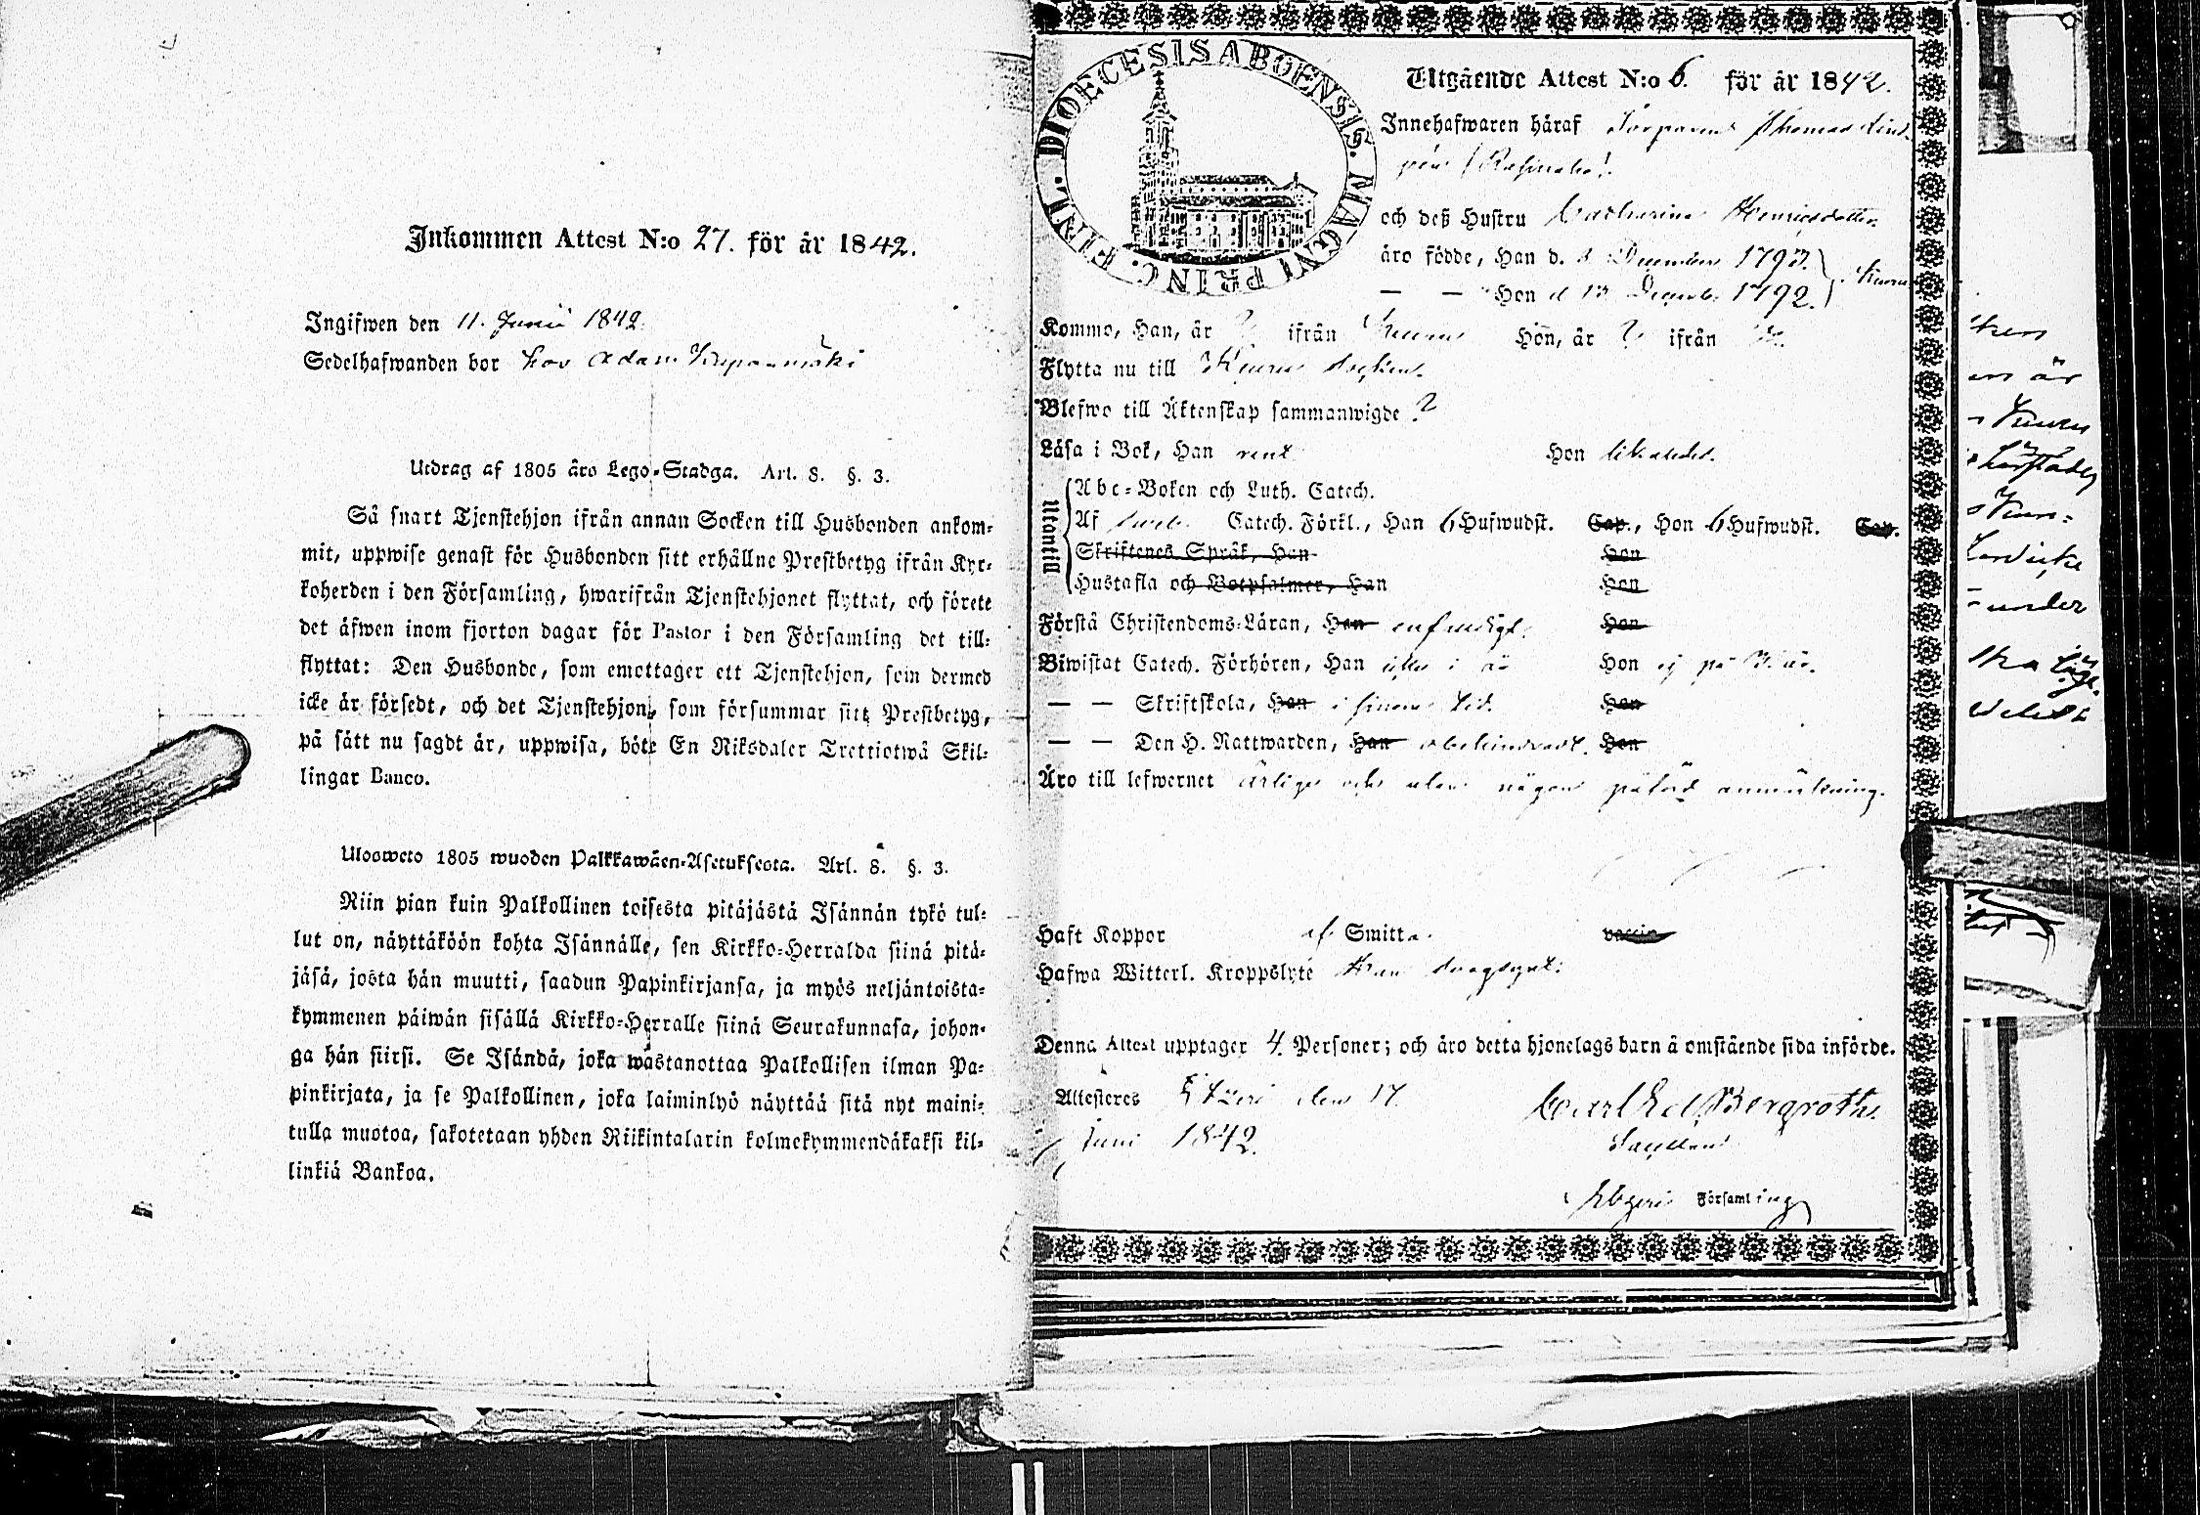 Inkommen Attest N:o 27. för år 1842.
Ingifwen den 11. Junii 1842.
Sedelhafwanden bor hos Adam
Utdrag af 1805 åro Lego-Stadga. Art. 8. §. 3.
Så snart Tjenstehjon ifrån annan Socken till Husbonden ankom-
mit, uppwise genast för Husbonden sitt erhållne Prestbetyg ifrån Kyr-
koherden i den Församling, hwarifrån Tjenstehjonet flyttat, och förete
det äfwen inom fjorton dagar för Pastor i den Församling det till-
flyttat: Den Husbonde, som emottager ett Tjenstehjon, som dermed
icke är försedt, och det Tjenstehjon, som försummar sitt Prestbetyg,
på sätt nu sagdt är, uppwisa, böte En Riksdaler Trettiotwå Skil-
lingar Banco.
Ulosweto 1805 wuoden Palkkawäen-Asetuksesta. Art. 8. §. 3.
Niin pian kuin Palkollinen toisesta pitäjästä Isännän tykö tul-
lut on, näyttäköön kohta Isännälle, sen Kirkko-Herralda siinä pitä-
jäsä, josta hän muutti, saadun Papinkirjansa, ja myös neljäntoista-
kymmenen päiwän sisällä Kirkko-Herralle siinä Seurakunnasa, johon-
ga hän siirsi. Se Isändä, joka wastanottaa Palkollisen ilman Pa-
pinkirjata, ja se Palkollinen, joka laiminlyö näyttää sitä nyt maini-
tulla muotoa, sakotetaan yhden Riikintalarin kolmekymmendäkaksi kil-
linkiä Bankoa.
DIOECESIS ABOENSIS. MAGNI PRINC. FINL.
Utgående Attest N:o 6. för år 1842.
Innehafwaren häraf Torparen Thomas
och deß Hustru Catharina Henricsdotter
äro födde, Han d. 3 December 1797.
— — Hon d 13 Decemb. 1792.
Kommo, Han, år ? ifrån Keuru Hon, år ? ifrån do.
Flytta nu till Keuru Socken.
Blefwo till Äktenskap sammanwigde ?
Läsa i Bok, Han rent Hon likaledes.
Utantill
Abc-Boken och Luth. Catech.
Af Catech. Förkl., Han 6 Hufwudst. Cap., Hon 6 Hufwudst. Cap.
Skriftenes Språk, Han Hon
Hustafla och Botpsalmer, Han Hon
Förstå Christendoms-Läran, Han enfaldigt. Hon
Biwistat Catech. Förhören, Han Hon ej på
— — Skriftskola, Han i sinom tid. Hon
— — Den H. Nattwarden, Han obehindradt. Hon
Äro till lefwernet ärliga och utan någon påförd anmärkning.
Haft Koppor af Smitta. vaccin
Hafwa Witterl. Kroppslyte Han swagsynt.
Denna Attest upptager 4. Personer; och äro detta hjonelags barn å omstående sida införde.
Attesteres Etzeri den 17.
Juni 1842.
Carl Bergroth.
Etzeri Församling